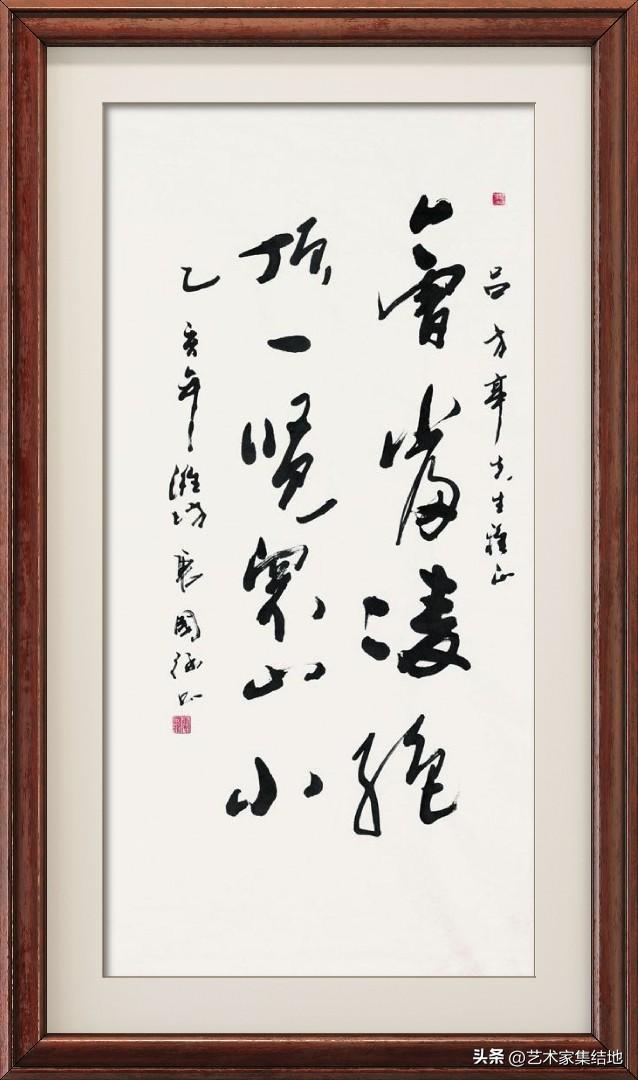 吕方幸先生雅正
會當凌絕
頂一覽眾山小
乙亥年潍坊张國徽书
头条 @艺术家集结地